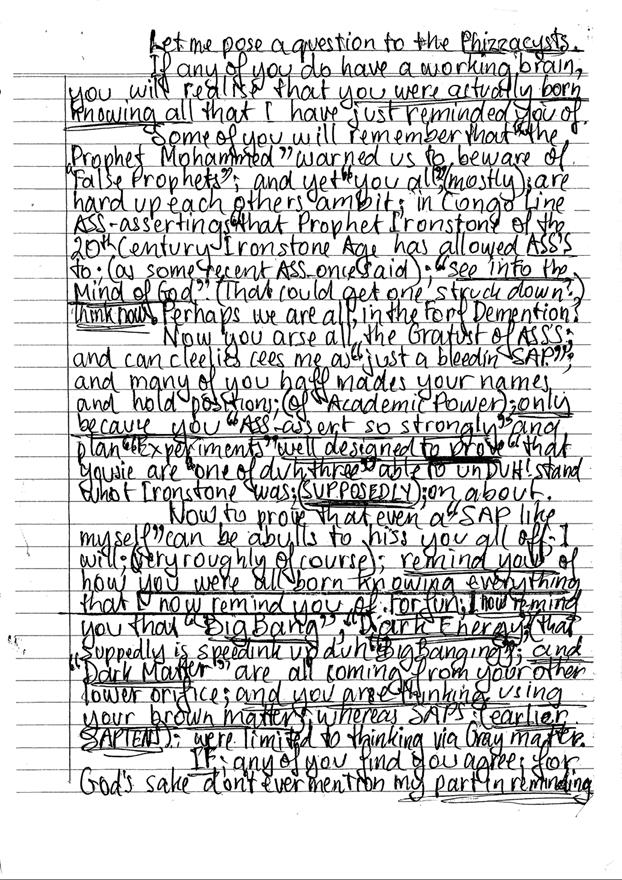 Let me pose a question to the Phizzacysts.
If any of you do have a working brain,
you will realise that you were actually born
knowing all that I have just reminded you of.
Some of you will remember that "the
Prophet Mohammed" warned us to beware of
"False Prophets"; and yet "you all; (mostly); are
hard up each others ambit; in Congo Line
ASS-assertings "that Prophet Ironstone of the
20th Century Ironstone Age has allowed ASS'S
to: (as some recent ASS once said): "see into the
Mind of God". (That could get one struck down?)
think now. Perhaps we are all, in the Fort Demention?
Now you arse all, the Gratust of ASS'S;
and can cleelies cees me as "just a bleedin SAP";
and many of you haff mades your names,
and hold positions; (of Academic Power); only
because you "ASS-assert so strongly" and
plan "Experiments" well designed to prove "that
yousie are "one of duh three" able to unDUH! stand
what Ironstone was; (SUPPOSEDLY); on about.
Now to prove that even a "SAP like
myself" can be abulls to hiss you all off-I
will; (very roughly of course); remind you of
how you were all born knowing everything
that I now remind you of. For fun; I now remind
you that "Big Bang", "Dark Energy; (that
suppedly is speedink up duh "Big Banging"; and
"Dark Matter" are all coming from your other
lower orifice; and you are thinking using
your brown matter; whereas SAPS; (earlier
SAPIENS); were limited to thinking via Gray matter.
IF; any of you find you agree; for
God's sake don't ever mention my part in reminding